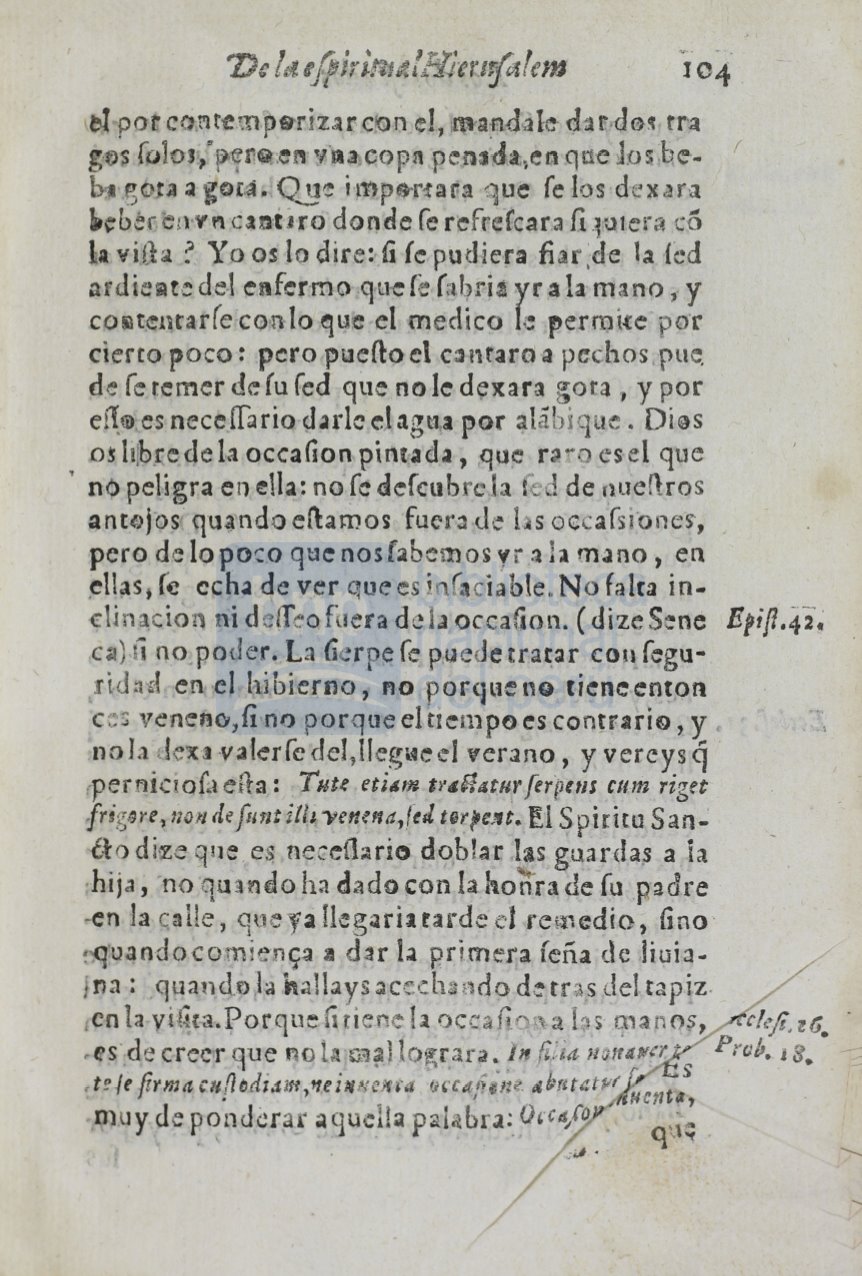 De la eſpiritual Hieruſalem 104
el por contemporizar con el, mandale dar dos tra
gos ſolos, pero en vna copa penada, en que los be-
ba gota a gota. Que importara que ſe los dexara
beber en vn cantaro donde ſe refreſcara ſi quiera cõ
la viſta? Yo os lo dire: ſi ſe pudiera fiar de la ſed
ardiente del enfermo que ſe ſabria yr a la mano, y
contentarſe con lo que el medico le permite por
cierto poco: pero pueſto el cantaro a pechos pue
de ſe temer de ſu ſed que no le dexara gota, y por
eſſo es neceſſario darle el agua por alãbique. Dios
os libre de la occaſion pintada, que raro es el que
no peligra en ella: no ſe deſcubre la ſed de nueſtros
antojos quando eſtamos fuera de las occaſsiones,
pero de lo poco que nos ſabemos yr a la mano, en
ellas, ſe echa de ver que es inſaciable. No falta in-
clinacion ni deſſeo fuera de la occaſion. (dize Sene
ca) ſi no poder. La ſierpe ſe puede tratar con ſegu-
ridad en el hibierno, no porque no tiene enton
ces veneno, ſi no porque el tiempo es contrario, y
no la dexa valerſe del, llegue el verano, y vereys q̃
pernicioſa eſta: Tute etiam tractatur ſerpens cum riget
frigore, non deſunt illi venena, ſed torpent. El Spiritu San-
cto dize que es neceſſario doblar las guardas a la
hija, no quando ha dado con la honra de ſu padre
en la calle, que ya llegaria tarde el remedio, ſino
quando comiença a dar la primera ſeña de liuia-
na: quando la hallays acechando detras del tapiz
en la viſita. Porque ſi tiene la occaſion a las manos,
es de creer que no la mal lograra. In filia non auer
te ſe firma cuſtodiam, ne inuenta occaſione abutatur ſe Es
muy de ponderar aquella palabra: Occaſion uenta,
que
Epiſt. 42.
eccleſi. 26.
Prob. 18.